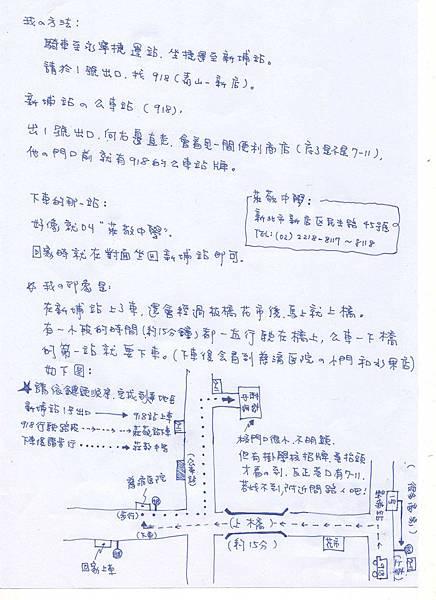 我の方法：
騎車至永寧捷運站，坐捷運至新埔站。
請於1號出口，找 918 (泰山－新店)。
新埔站の公車站 (918)，
出1號出口，向右邊直走，會看見一間便利商店 (忘了是不是7-11)，
他の門口前就有918的公車站牌。
下車的那一站：
好像就叫"莊敬中學"。
回家時就在對面坐回新埔站即可。
莊敬中學：
新北市新店区民生路45號。
TEL：(02) 2218-8117~8118
我の印象是：
在新埔站上了車，還會經過板橋花市後，馬上就上橋。
有一小段的時間(約15分鐘)都一直行駛在橋上，公車一下橋
的第一站就要下車。(下車後会看到慈濟医院の小門和水果店)
如下圖：
新埔站1号出口 → 918站上車
918行駛路段 → 莊敬站下車
下車後需步行 → 莊敬中學
校門口很小，不明顯，
但有掛學校招牌，要抬頭
才看の到，且正老口有7-11，
若找不到，附近問路人吧！
慈濟医院
(步行)
(下車)
回家上車
(上橋)
(約15分)
花市
(上車)